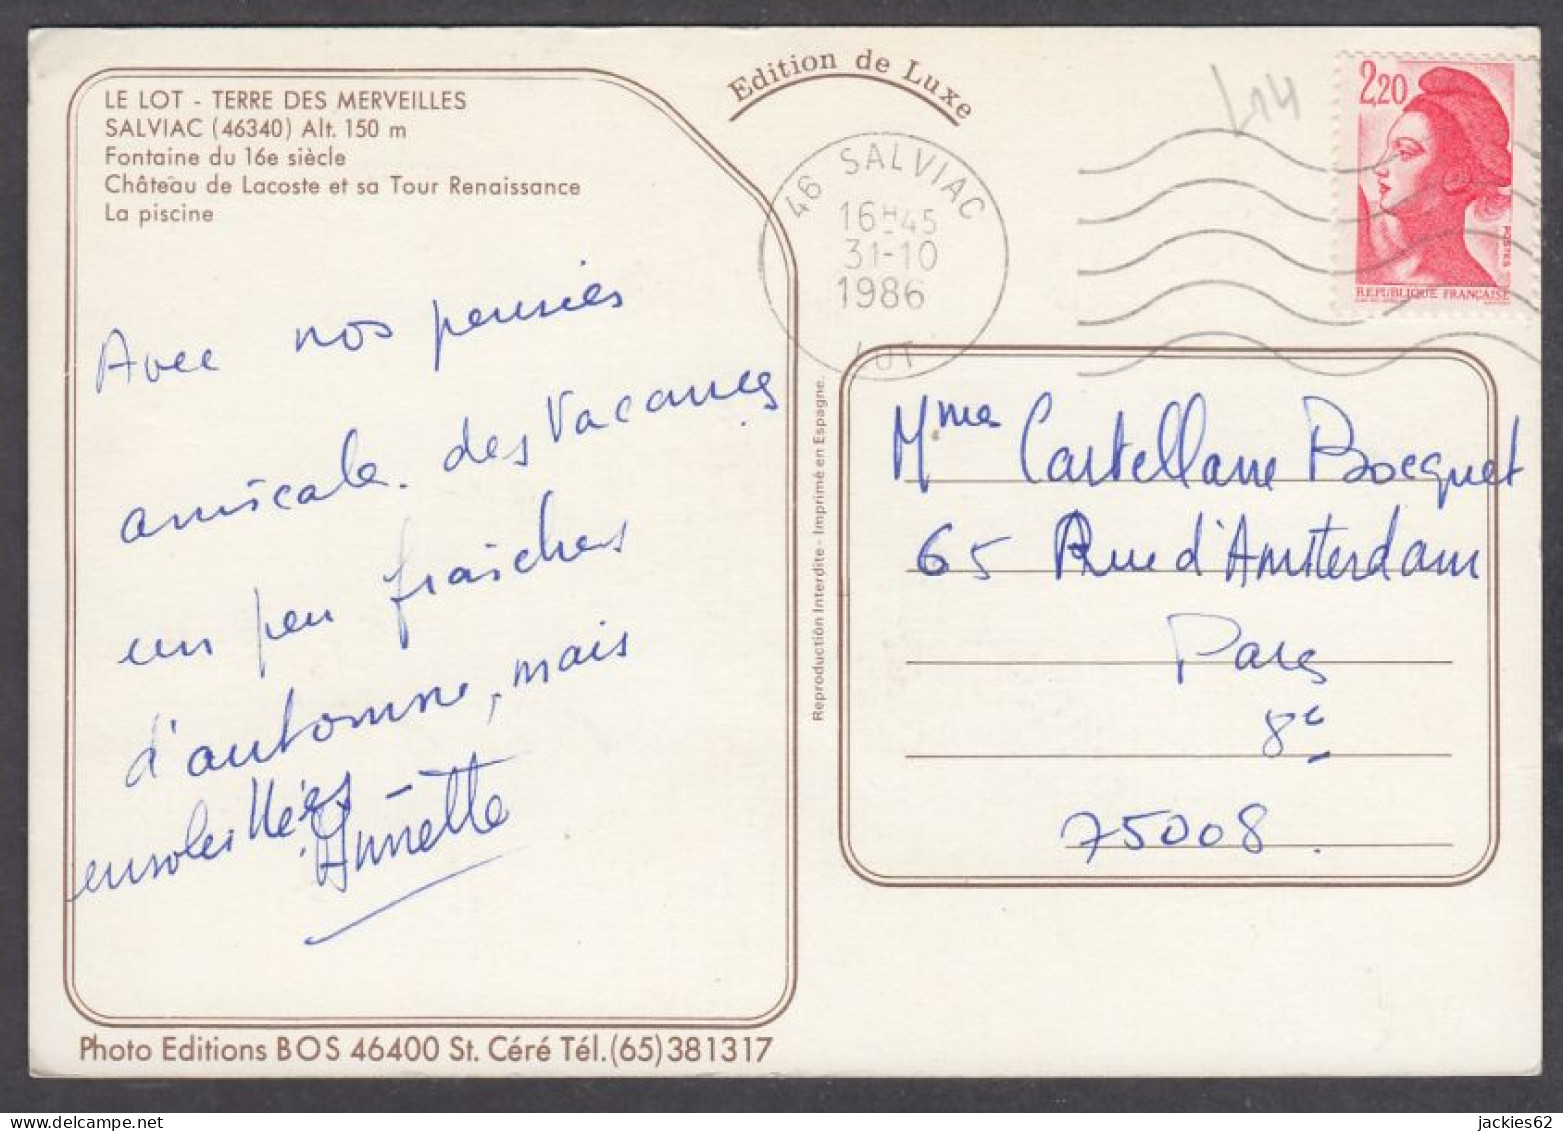 LE LOT - TERRE DES MERVEILLES
SALVIAC (46340) Alt. 150 m
Fontaine du 16e siècle
Château de Lacoste et sa Tour Renaissance
La piscine
Avec nos pensées
amicale. des Vacances
un peu fraîches
d'automne, mais
ensoleillées -
Annette
Photo Editions BOS 46400 St. Céré Tél.(65)381317
Edition de Luxe
46 SALVIAC
16H45
31-10
1986
LOT
L14
2,20
POSTES
REPUBLIQUE FRANÇAISE
Reproduction Interdite - Imprimé en Espagne.
Mme Castellane Bocquet
65 Rue d'Amsterdam
Paris
8e
75008.
jackies62